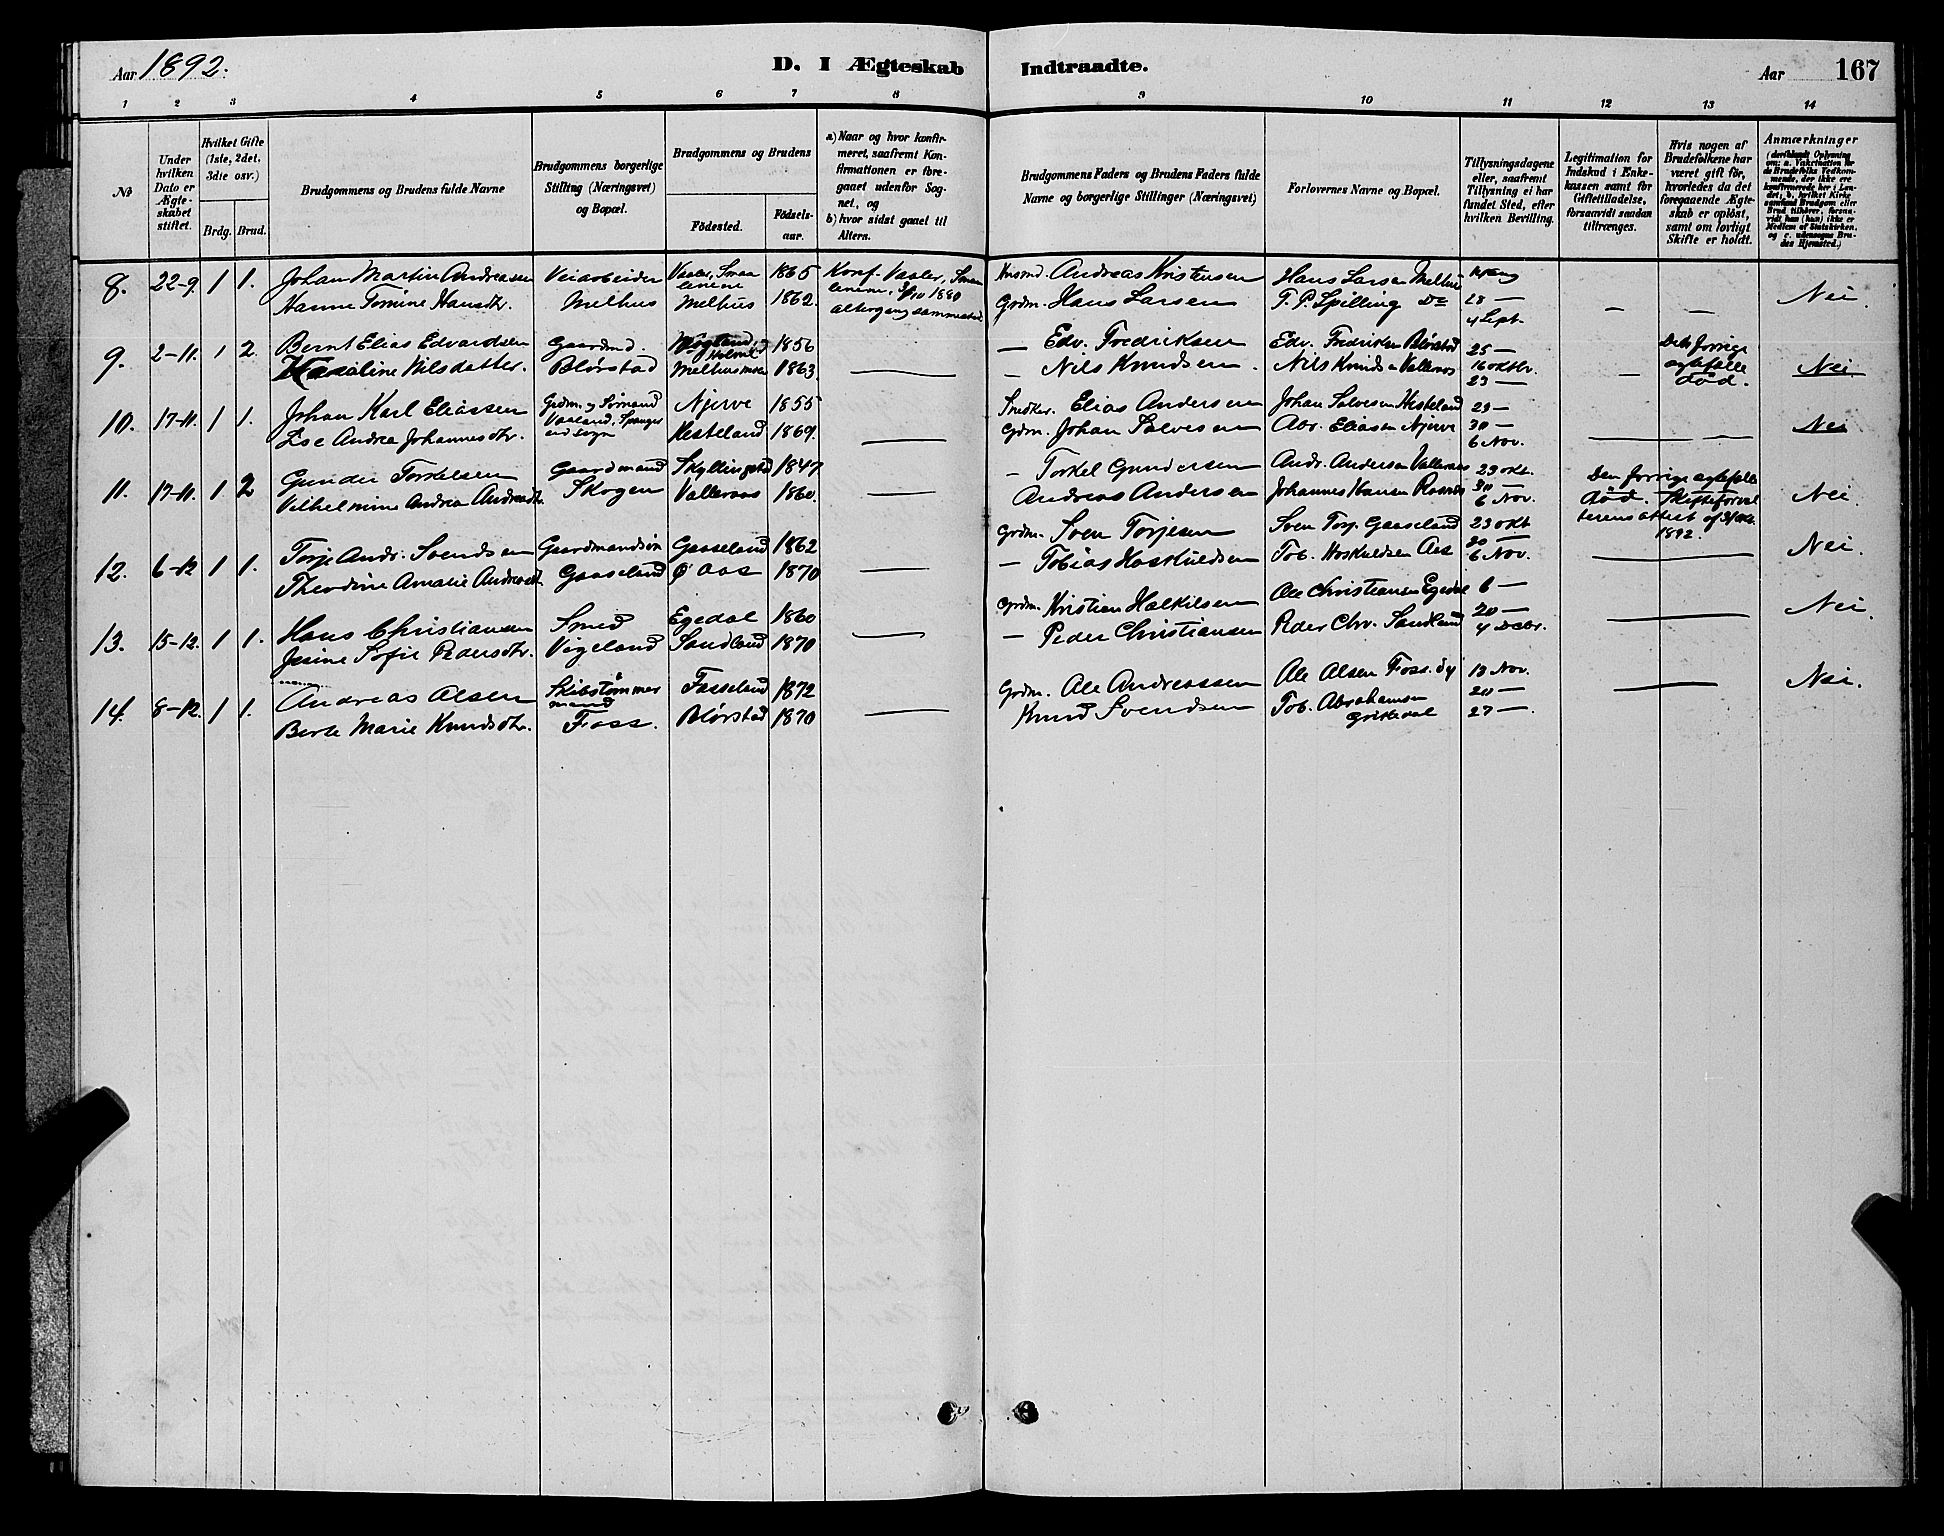 Aar 1892.
D. I Ægteskab Indtraadte.
Aar 167
1 2 3 4 5 6 7 8 9 10 11 12 13 14
No
Under hvilken Dato er Ægteskabet stiftet.
Hvilket Gifte (1ste, 2det, 3die osv.)
Brdg. Brud.
Brudgommens og Brudens fulde Navne
Brudgommens borgerlige Stilling (Næringsvei) og Bopæl.
Brudgommens og Brudens
Fødested. Fødselsaar.
a) Naar og hvor konfirmeret, saafremt Konfirmationen er foregaaet udenfor Sognet, og
b) hvor sidst gaaet til Alters.
Brudgommens Faders og Brudens Faders fulde Navne og borgerlige Stillinger (Næringsvei)
Forlovernes Navne og Bopæl.
Tillysningsdagene eller, saafremt Tillysning ei har fundet Sted, efter hvilken Bevilling.
Legitimation for Indskud i Enkekassen samt for Giftetilladelse, forsaavidt saadan tiltrænges.
Hvis nogen af Brudefolkene har været gift før, hvorledes da det foregaaende Ægteskab er opløst, samt om lovligt Skifte er holdt.
Anmærkninger
8. 22-9. 1 1. Johan Martin Andreasen Veiarbeider Vaaler, Smaa 1865 Konf. Vaaler, Smaa Husmd. Andreas Kristensen Hans Larsen Melhus
lenene lenene, 3/10 1880
Hanne Tomine Hansdtr. Melhus Melhus 1862. altergang sammested Grdm. Hans Larsen T. P. Spilling Do 28 — — — Nei
4 Sept.
9. 2-11. 1 2. Bernt Elias Edvardsen Gaardmd. 1856 — Edv. Fredriksen Edv. Fredriksen Blørstad 25 — Den forrige
Nilsdatter. Blørstad Melhusmoen 1863. — — Nils Knudsen. Nils Knudsen Valleraas 16 oktbr. — ægtefælle Nei
23 — død.
10. 17-11. 1 1. Johan Karl Eliassen Grdm. og Sømand Njerve 1855 Snedker. Elias Andersen Johan Salvesen Hesteland 23 —
Vaaland, Spanger
Ese Andrea Johannesdtr. eid sogn Hesteland 1869. — Grdm. Johan Salvesen Abr. Eliasen Njerve 30 — — — Nei
6 Nov.
11. 17-11. 1 2 Gunder Torkelsen Gaardmand Skyllingstad 1847 — Torkel Gundersen Andr. Andersen Valleraas 23 okt. Den forrige ægtefælle
Vilhelmine Andrea Andreasdtr. Skogen Valleraas 1860. — Andreas Andersen Johannes Hansen 30 — død. Skifteforval Nei.
6 Nov. terens attest af 31 okt.
1892.
12. 6-12 1 1. Torje Andr. Svendsen Gaardmandsøn Gaaseland 1862 Grdm. Sven Torjesen Sven Torj. Gaaseland 23 okt
30 —
Theodine Amalie Andreasdtr. Gaaseland Ø Aas 1870 — — Tobias Hoskuldsen Tob. Hoskuldsen Aas 6 Nov. — Nei.
13. 15-12. 1 1. Hans Christiansen Smed Egedal 1860 Grdm. Kristian Halkilsen Ole Christiansen Egedal 6 —
20 —
Jesine Sofie Pedersdtr. Vigeland Sandland 1870 — — Peder Christiansen Peder Chr. Sandland 4 Decbr. — Nei.
14. 8-12. 1 1. Andreas Olsen Skibstømmer Fasseland 1872 Grdm. Ole Andreassen Ole Olsen Foss. 13 Nov.
mand 20 — — Nei.
Berte Marie Knudsdtr. Foss. Blørstad 1870 — Knud Svendsen Tob. Abrahamsen 27 —